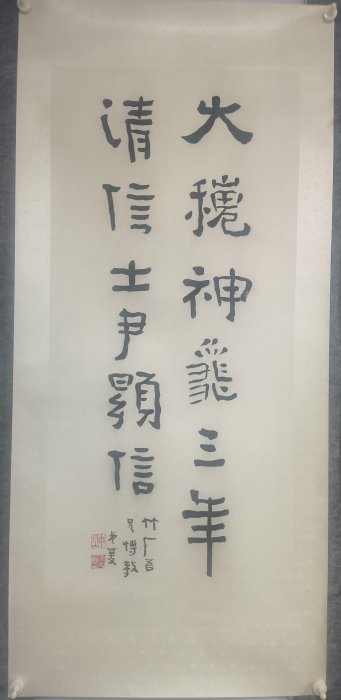 大穐神龜三年
清信士尹顯信
竹厂吾
兄博教
弟夏